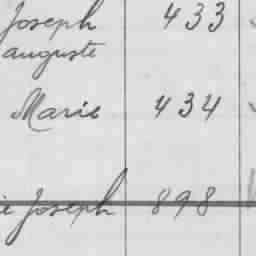 Joseph 433
auguste
Marie 434
Joseph 898